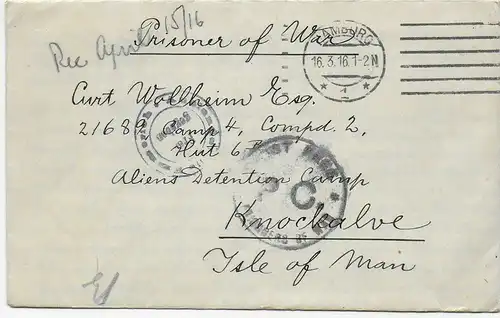 Rec April 15/16
Prisoner of War
HAMBURG
16.3.16.1-2N
* 1 *
Curt Wollheim Esq.
21689 Camp 4, Compd. 2,
Hut 6
Aliens Detention Camp
P.C.
OF WAR
Knockalve
Isle of Man